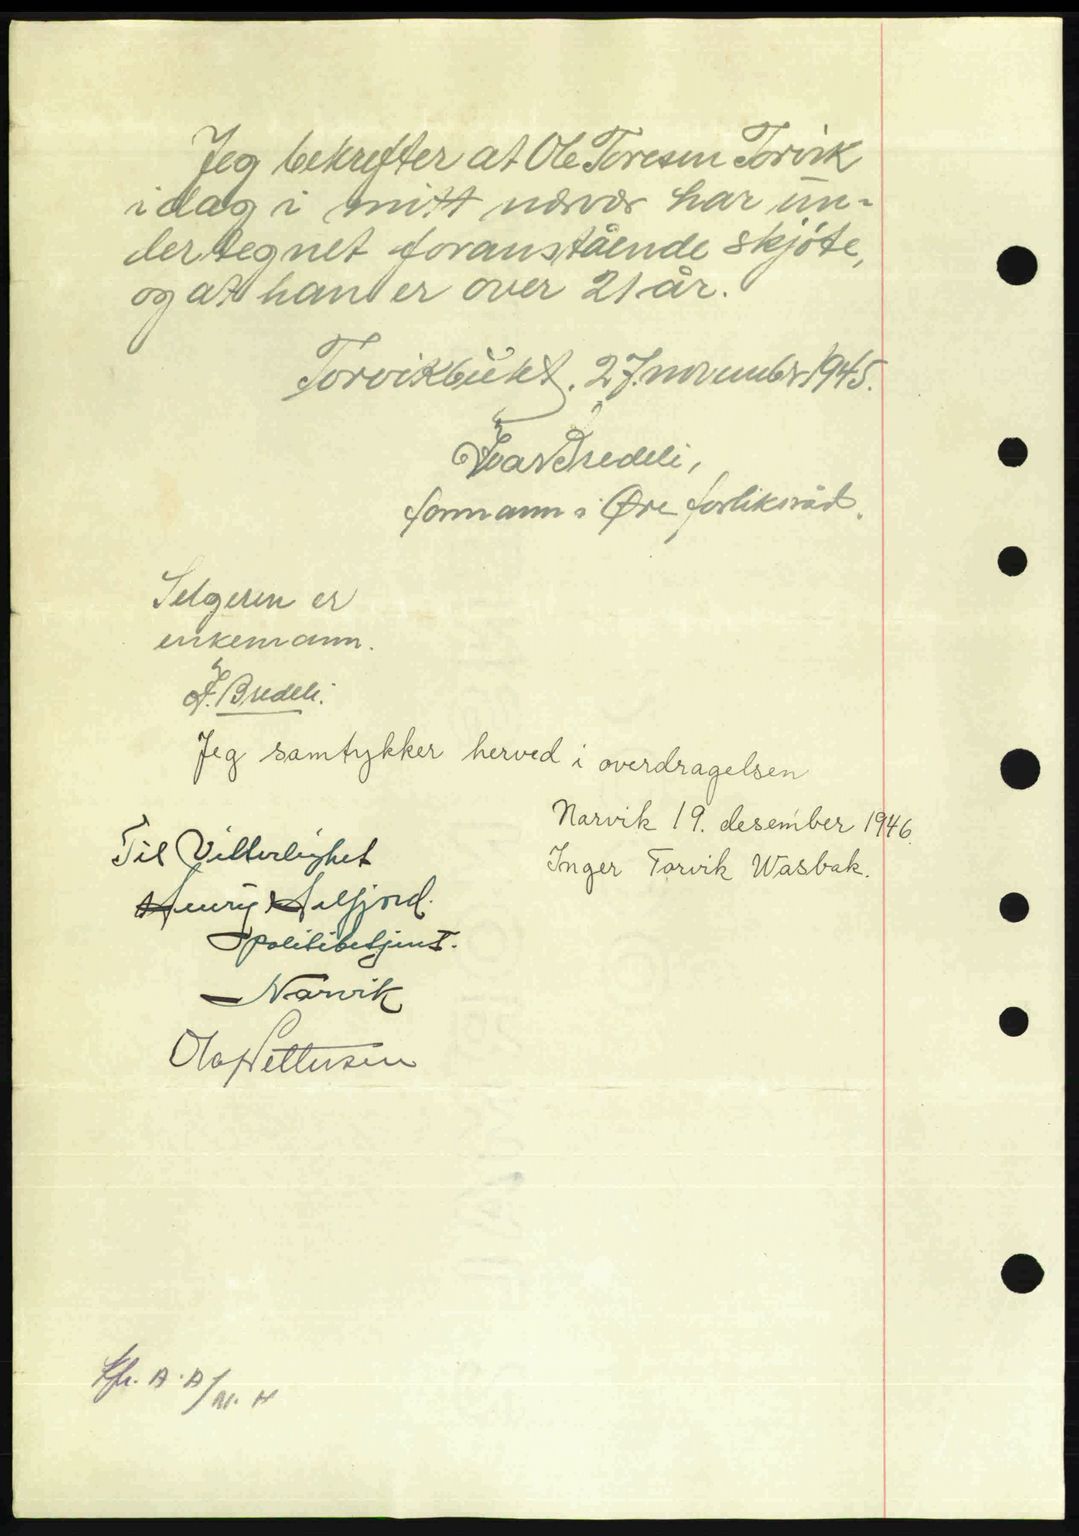 Jeg bekrefter at Ole Toresen Torvik
i dag i mitt nærvær har un-
dertegnet foranstående skjöte,
og at han er over 21 år.
Torvikbukt. 27. november 1945.
Ivar Bredeli,
formann i Øre forliksråd.
Selgeren er
enkemann.
I. Bredeli.
Jeg samtykker herved i overdragelsen
Narvik 19. desember 1946.
Inger Torvik Wasbak.
Til Vitterlighet
Henry
politibetjent.
Narvik
Olaf Pettersen
Kfr. A.A/M.H